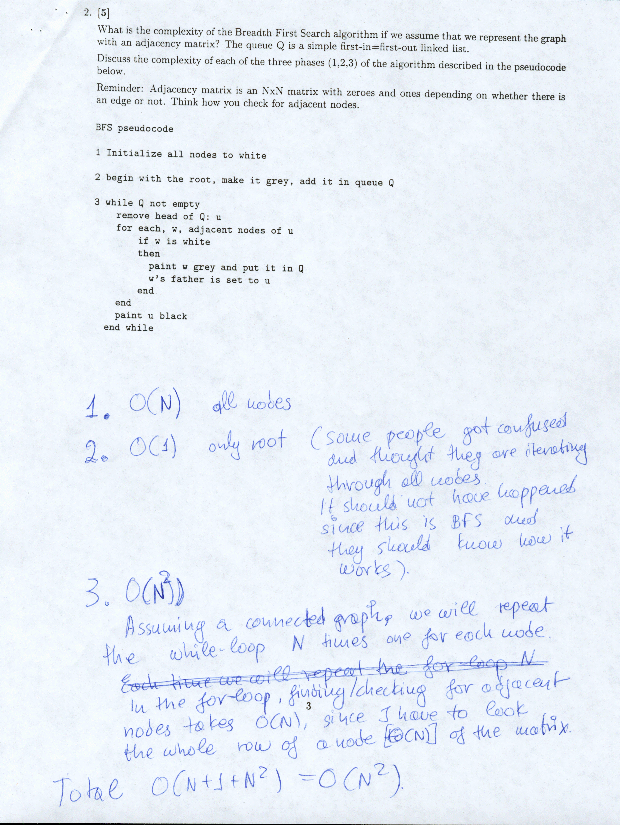 2. [5]
What is the complexity of the Breadth First Search algorithm if we assume that we represent the graph
with an adjacency matrix? The queue Q is a simple first-in=first-out linked list.
Discuss the complexity of each of the three phases (1,2,3) of the algorithm described in the pseudocode
below.
Reminder: Adjacency matrix is an NxN matrix with zeroes and ones depending on whether there is
an edge or not. Think how you check for adjacent nodes.
BFS pseudocode
1 Initialize all nodes to white
2 begin with the root, make it grey, add it in queue Q
3 while Q not empty
remove head of Q: u
for each, w, adjacent nodes of u
if w is white
then
paint w grey and put it in Q
w's father is set to u
end
end
paint u black
end while
1. O(N) all nodes
2. O(1) only root (some people got confused
and thought they are iterating
through all nodes.
It should not have happened
since this is BFS and
they should know how it
works).
3. O(N²)
Assuming a connected graph, we will repeat
the while-loop N times one for each node.
Each time we will repeat the for-loop N
In the for-loop, finding/checking for adjacent
3
nodes takes O(N), since I have to look
the whole row of a node [O(N)] of the matrix.
Total O(N+1+N²) = O(N²).